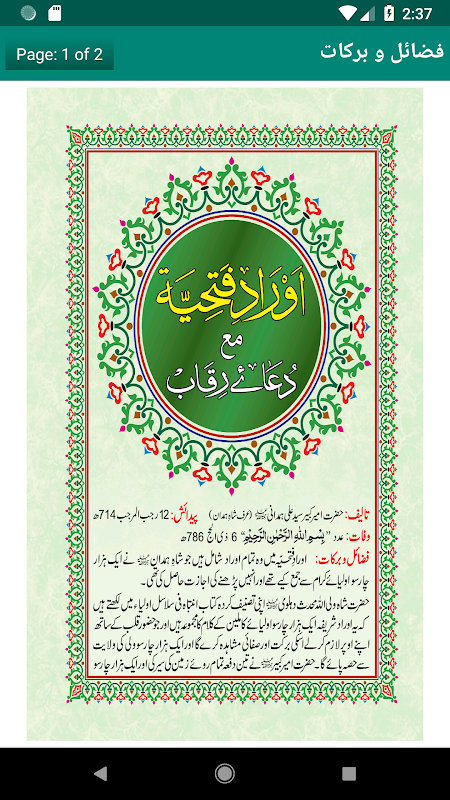 2:37
Page: 1 of 2
فضائل و برکات
اَوْرَادِ فَتْحِیَّة
مع
دُعَائے رِقَاب
تالیف: حضرت امیر کبیر سید علی ہمدانی (عرف شاہِ ہمدان) پیدائش: 12 رجب المرجب 714ھ
وفات: عدد ”بِسْمِ اللهِ الرَّحْمٰنِ الرَّحِيْمِ“ 6 ذی الحج 786ھ
فضائل و برکات: اورادِ فتحیّہ میں وہ تمام اوراد شامل ہیں جو شاہِ ہمدان نے ایک ہزار
چار سو اولیائے کرام سے جمع کیے تھے اور انہیں پڑھنے کی اجازت حاصل کی تھی۔
حضرت شاہ ولی اللہ محدث دہلوی اپنی تصنیف کردہ کتاب انتباہ فی سلاسل اولیاء میں لکھتے ہیں
کہ یہ اوراد شریفہ ایک ہزار چار سو اولیائے کاملین کے کلام کا مجموعہ ہیں اور جو حضورِ قلب کے ساتھ
اپنے اوپر لازم کر لے اسکی برکت اور صفائی مشاہدہ کرے گا اور ایک ہزار چار سو ولی کی ولایت
سے حصہ پائے گا۔ حضرت امیر کبیر نے تین دفعہ تمام روئے زمین کی سیر کی اور ایک ہزار چار سو